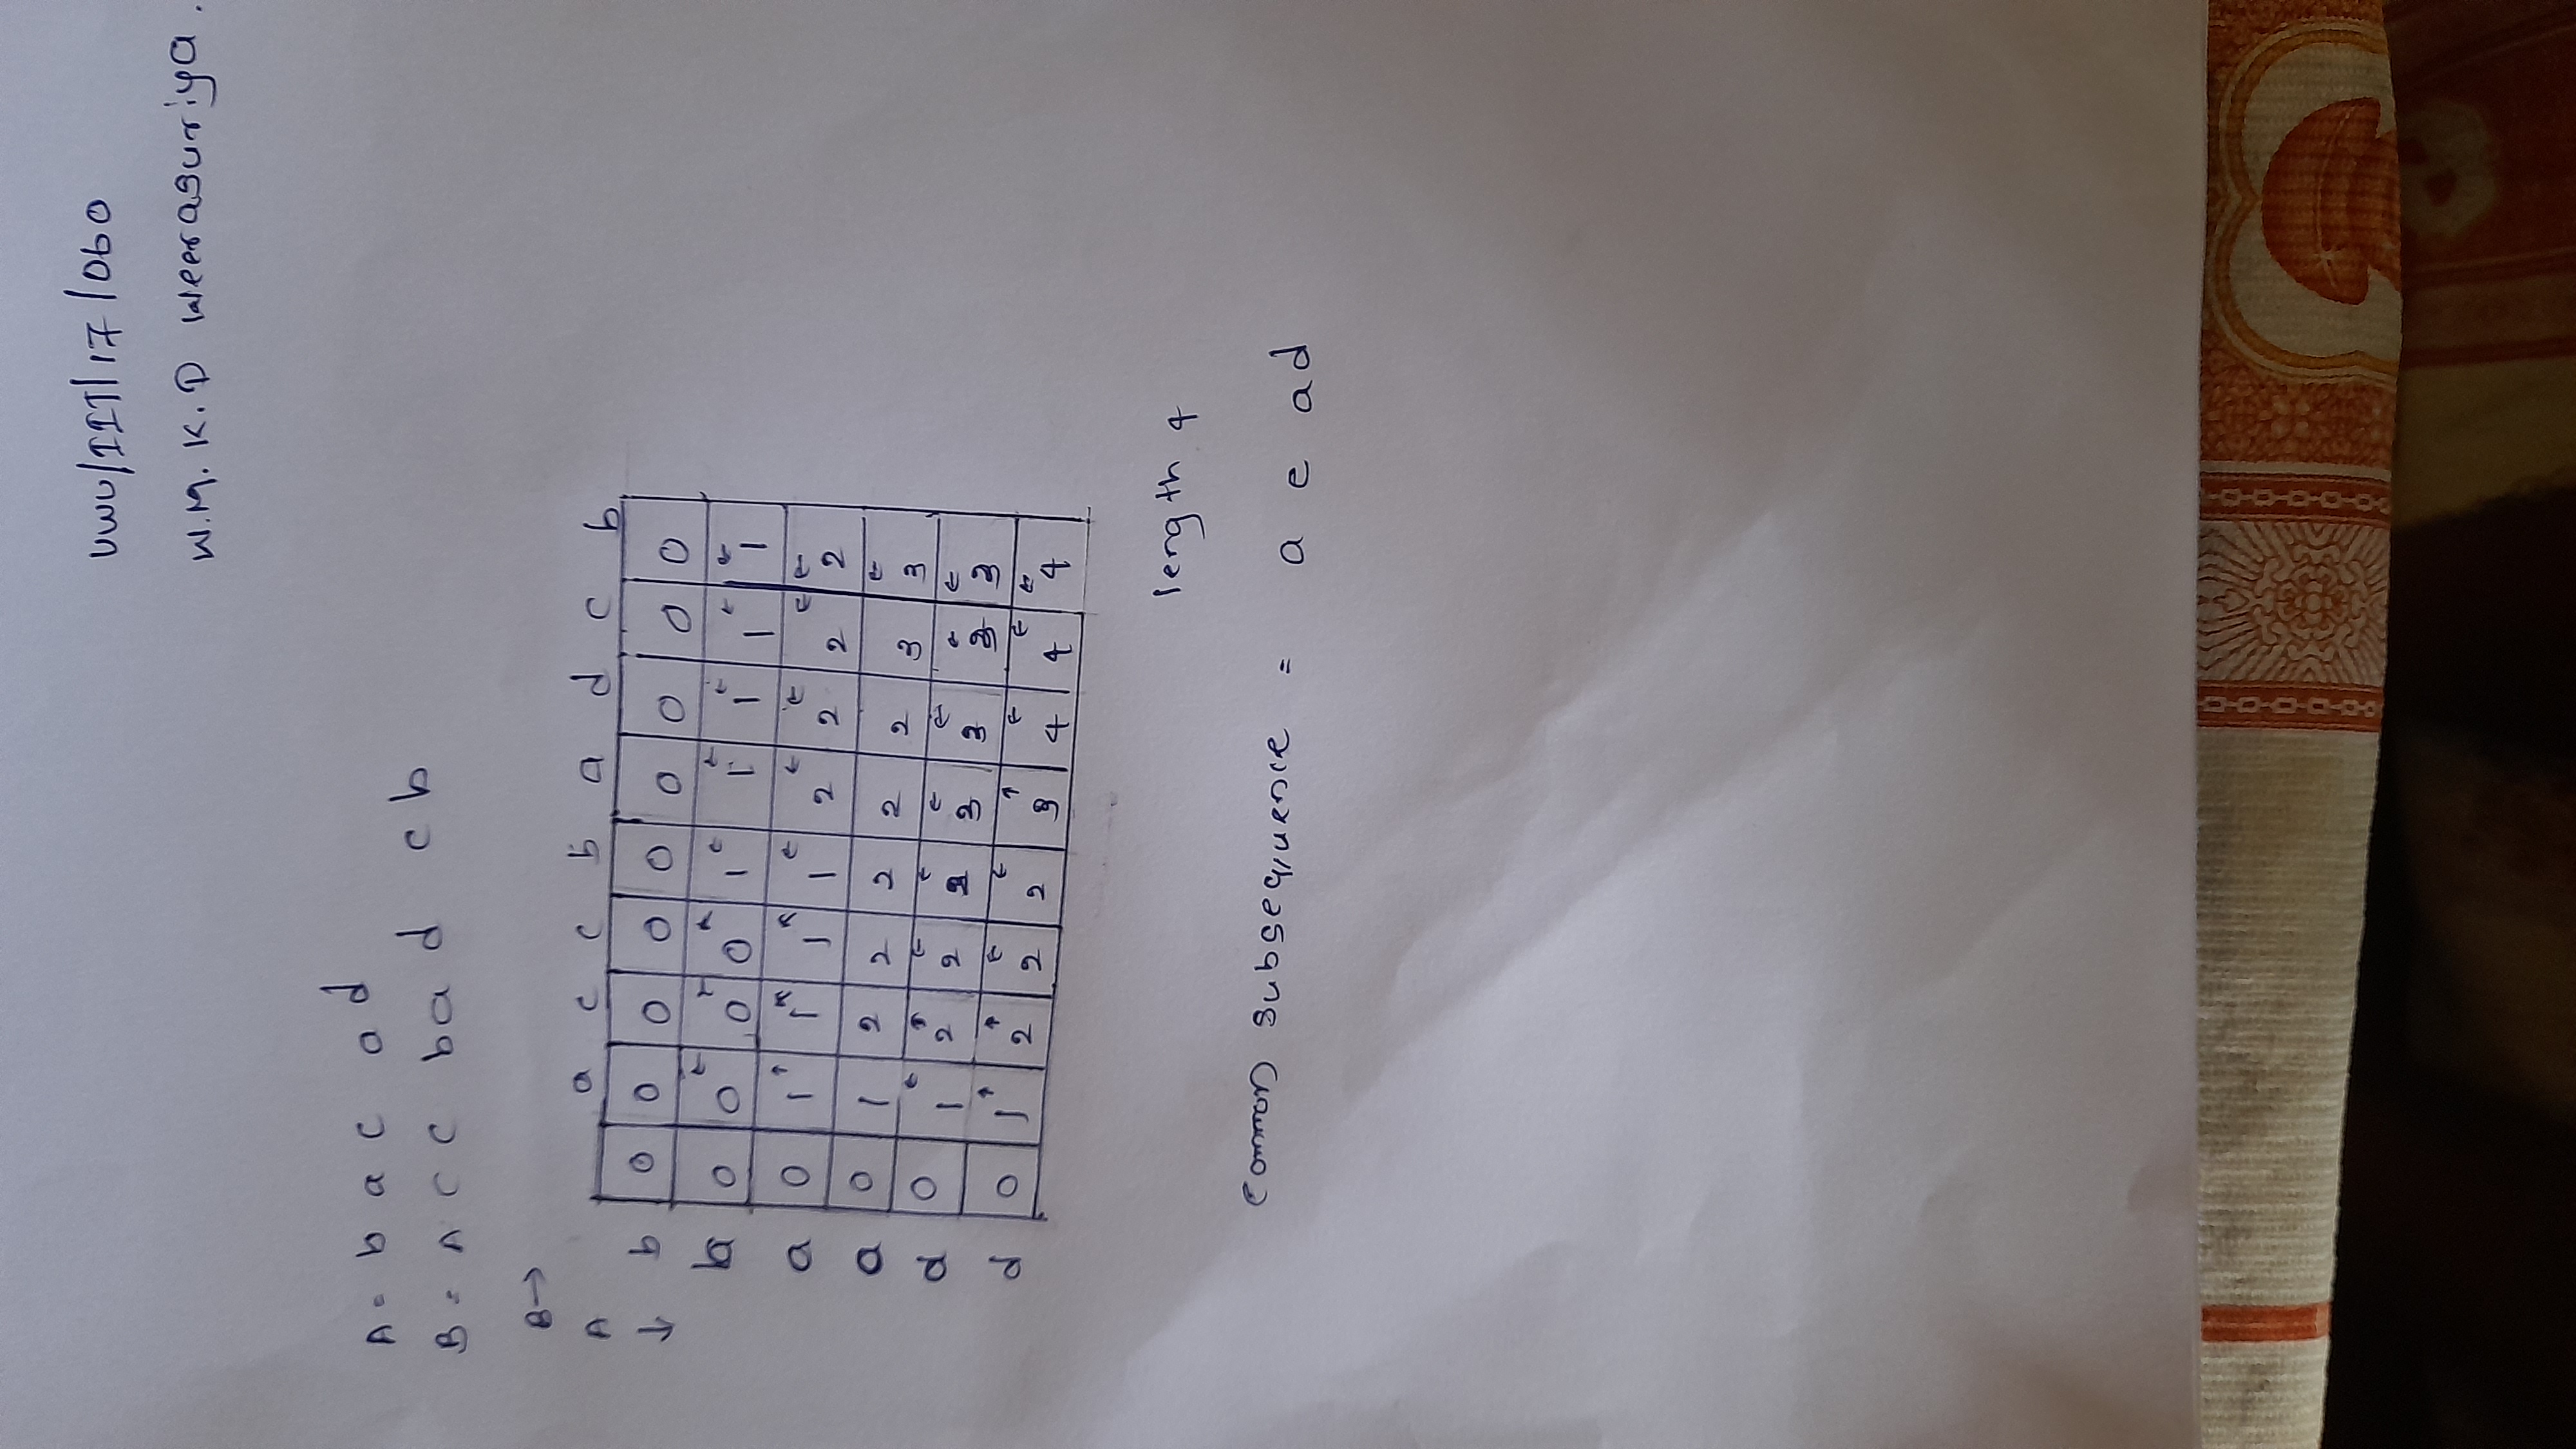 UWU/IIT/17/060
W.M.K.D Weerasuriya.
A = b a c a d
B = A c c b a d c b
B →
A
↓
a c c b a d c b
b 0 0 0 0 0 0 0 0 0
b 0 0← 0 0↖ 1← 1← 1← 1← 1←
a 0 1↑ 1↖ 1↖ 1← 2← 2← 2← 2←
a 0 1 2 2 2 2 2 3 3←
d 0 1← 2↑ 2← 2← 3← 3← 3← 3←
d 0 1↑ 2↑ 2← 2← 3↑ 4← 4← 4←
length 4
common subsequence = a c a d